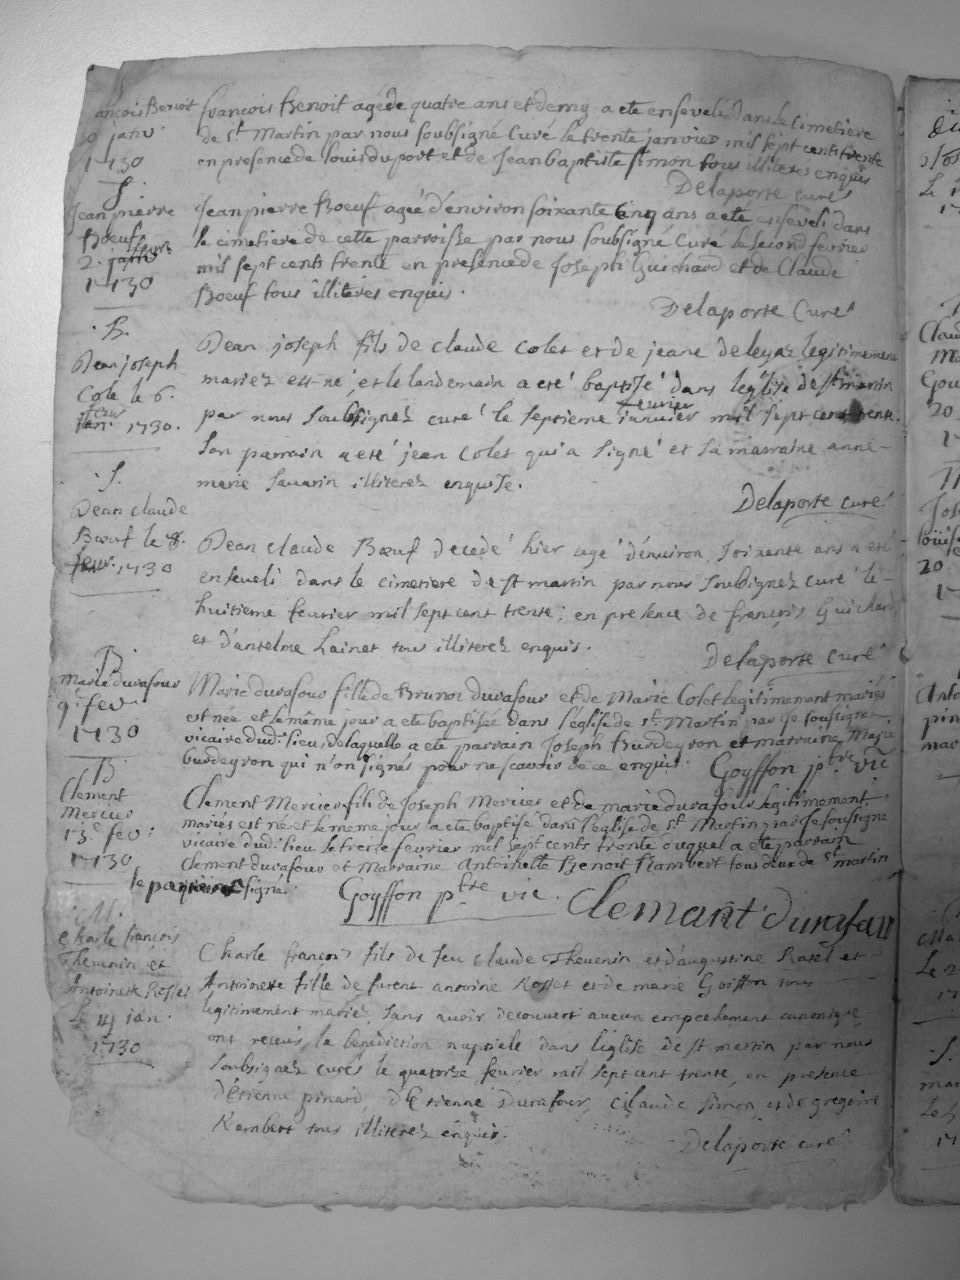 S.
ançois Benoit
30 janv.
1730
françois Benoit agé de quatre ans et demy a eté ensevelé dans le cimetiere
de St Martin par nous soubsigné Curé le trente janvier mil sept cent trente
en presence de Louis duport et de Jean baptiste Simon tous illiteres enquis
Delaporte curé
S.
Jean pierre
Boeuf
2. janv fevr
1730
Jean pierre Boeuf agé d'environ soixante cinq ans a eté enseveli dans
le cimetiere de cette parroisse par nous soubsigné Curé le second fevrier
mil sept cents trente en presence de Joseph Guichard et de Claude
Boeuf tous illiteres enquis.
Delaporte Curé
B.
Jean joseph
Cole le 6.
fevr
jan. 1730.
Jean joseph fils de claude Colet et de jeane de leyaz legitimement
mariez est né, et le landemain a eté baptisé dans leglise de st martin
par nous soubsignez curé le septieme janvier fevrier mil sept cent trente.
Son parrain a eté jean Colet qui a signé et sa marraine anne-
marie Savarin illiterez enquise.
Delaporte curé
S.
Jean claude
Bœuf le 8.
fevr. 1730
Jean claude Bœuf decedé hier agé d'environ soixente ans a eté
enseveli dans le cimetiere de st martin par nous soubsignez curé le
huitieme fevrier mil sept cent trente; en presence de françois Guichard
et d'antelme hainet tous illiterez enquis.
Delaporte curé
B
marie durafour
9. fevr
1730
Marie durafour fille de Brunoz durafour et de Marie Colet legitimement mariés
est née et le même jour a eté baptisée dans l'église de St Martin par je soussigné
vicaire dud. lieu, de laquelle a eté parrain Joseph Burdeyron et marraine Marie
burdeyron qui n'on signés pour ne scavoir de ce enquis. Goyffon ptre vic
B
Clement
Mercier
13e fev:
1730
Clement Mercier fils de Joseph Mercier et de marie durafour legitimement
mariés est né et le meme jour a eté baptisé dans l'eglise de St Martin par je soussigné
vicaire dud. lieu le treise fevrier mil sept cents trente auquel a eté parrain
Clement durafour et Marraine Antoinette Benoit Rambert tous deux de St martin
le parrain signé. Goyffon ptre vic. Clemant durafour
M.
Charle françois
Thevenin et
Antoinete Rosset
Le 14 jan.
1730
Charle françois fils de feu claude Thevenin et d'augustine Ratel et
Antoinette fille de furent antoine Rosset et de marie Goiffon tous
legitimement mariez, sans avoir decouvert aucun empechement canonique
ont receus la benediction nuptiale dans l'eglise de st martin par nous
soubsignez curés le quatorze fevrier mil sept cent trente, en presence
d'étienne pinard, d'étienne Durafour, Claude simon et de gregoire
Rambert tous illiterez enquis.
Delaporte curé